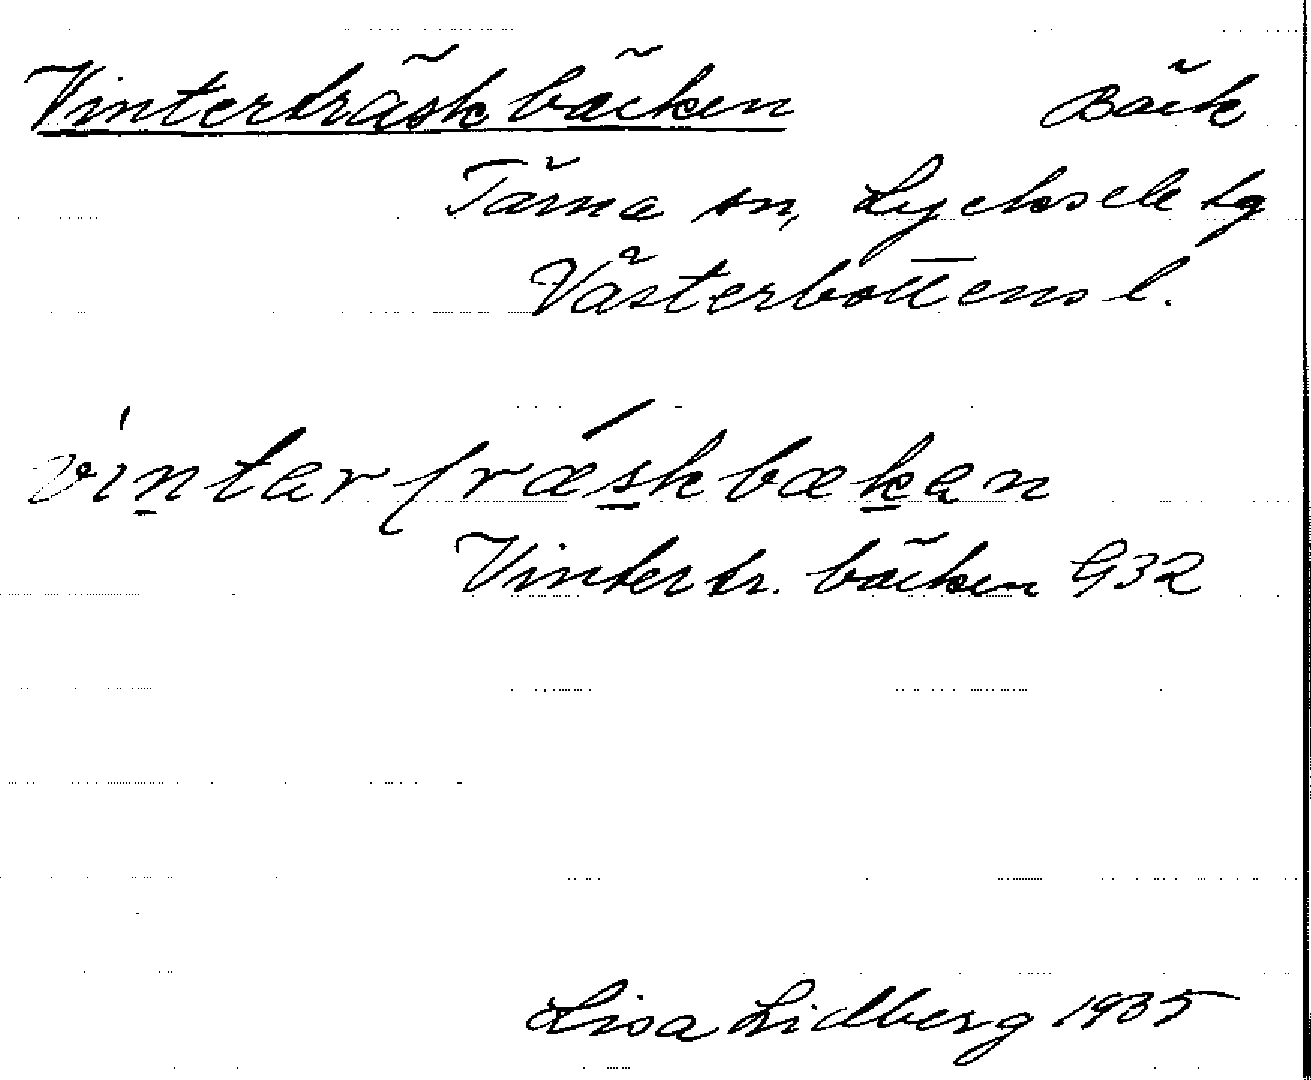 Vinterträskbäcken Bäck
Tärna sn, Lycksele lg
Västerbottens l.
vintarfræskbækan
Vintertr. bäcken G32
Lisa Lidberg 1935